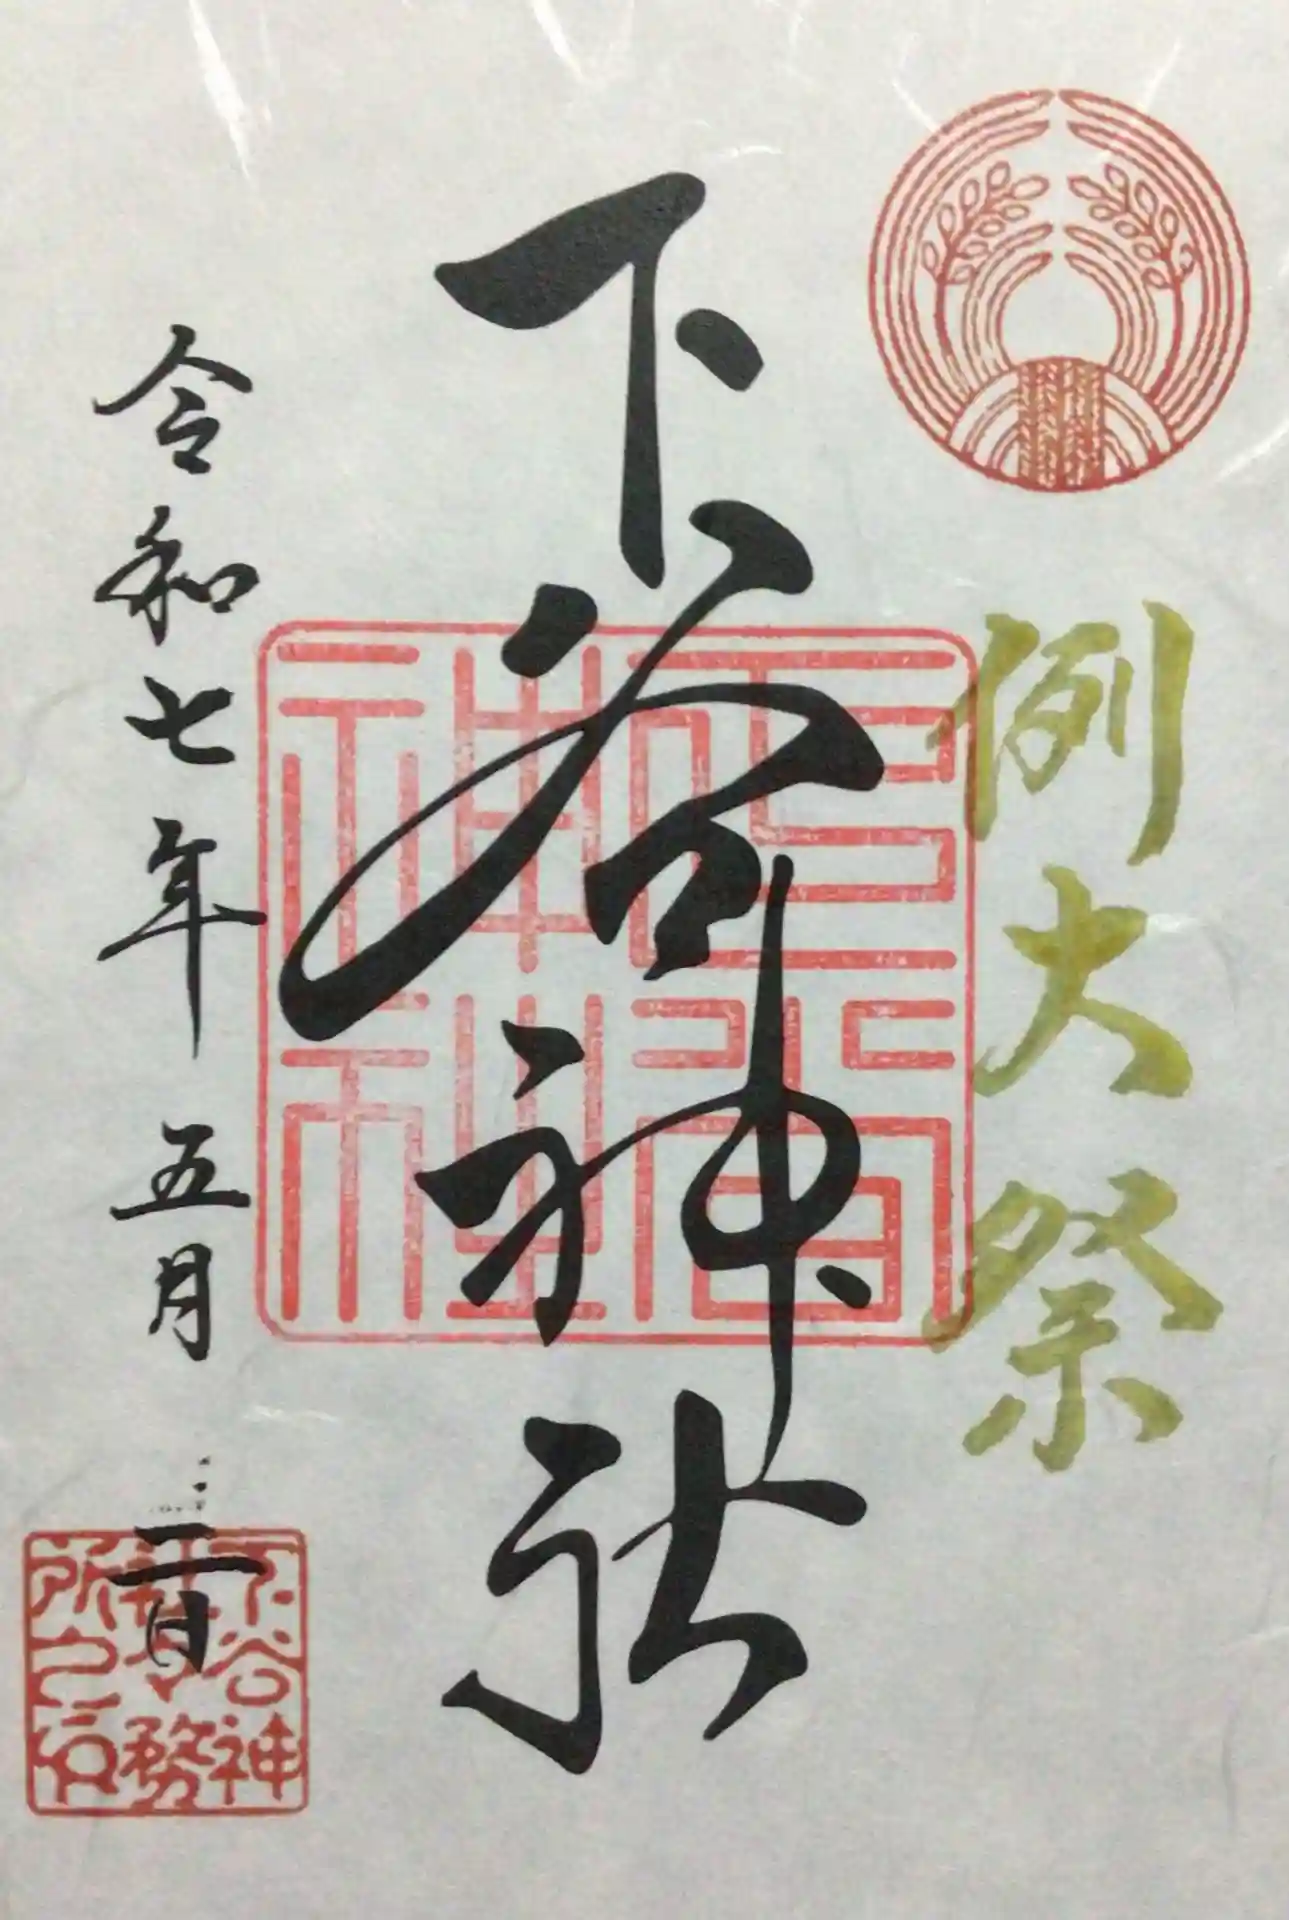 例大祭
下谷神社
令和七年五月二日
下谷神
社務
所之印